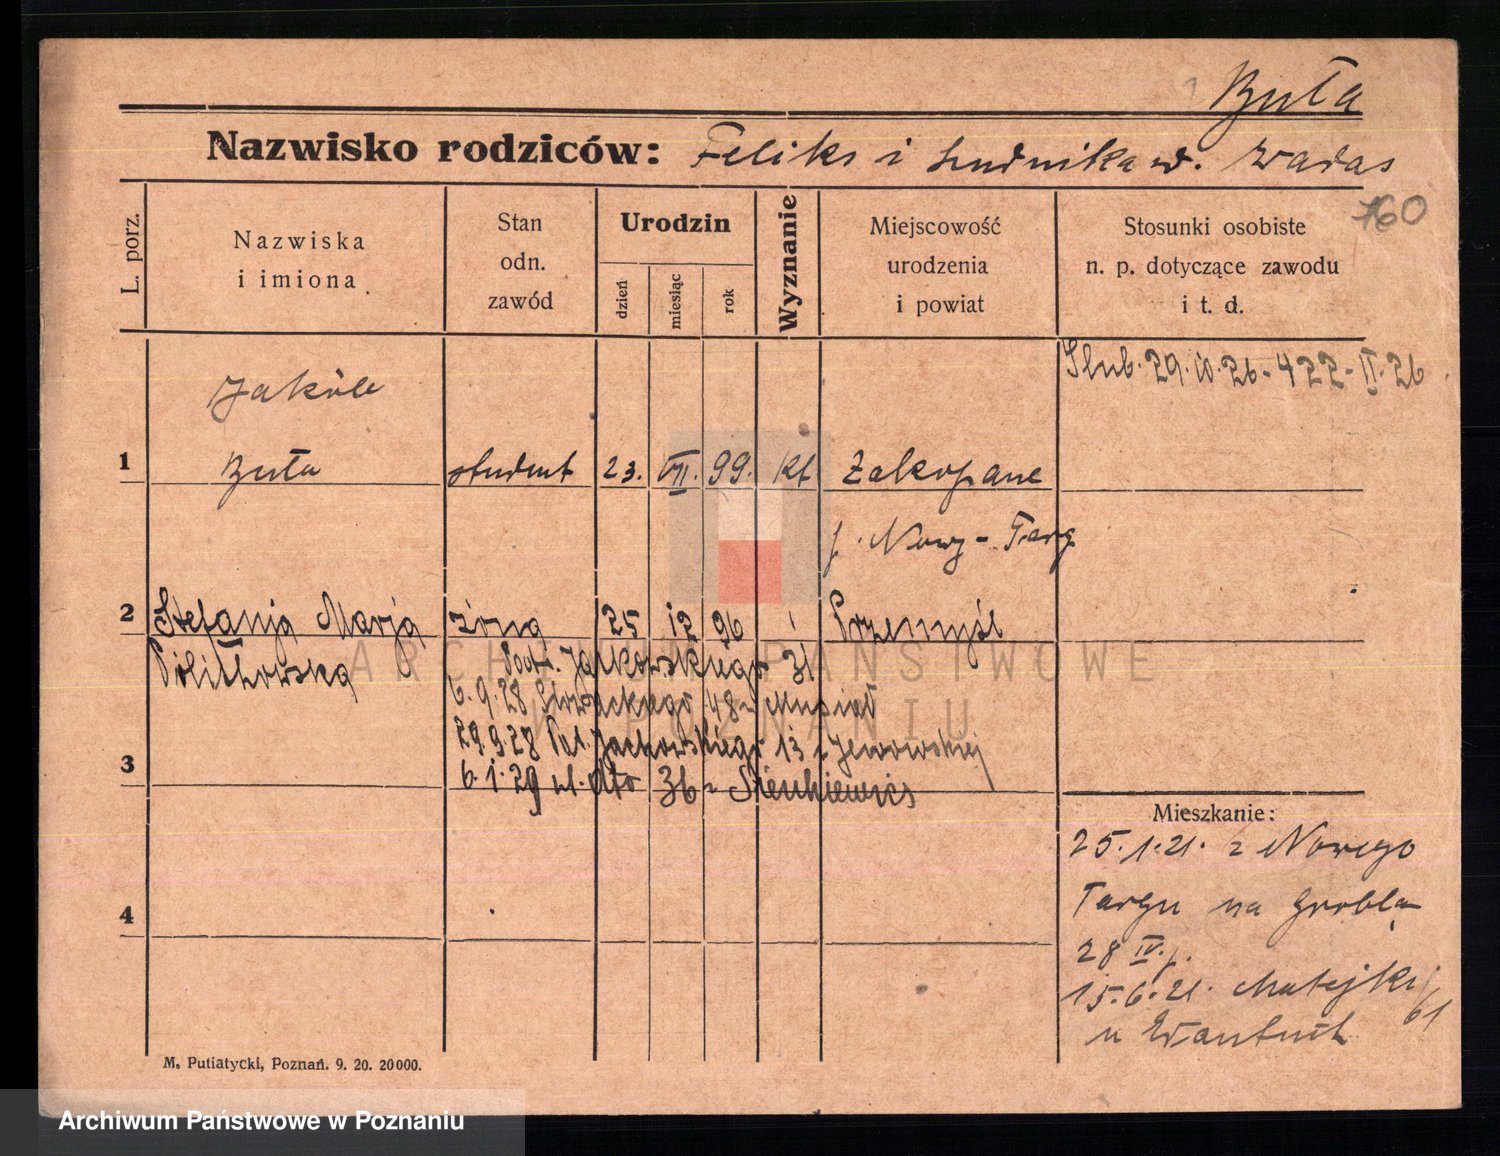 Buła
Nazwisko rodziców: Feliks i Ludwika w. Wadas
760
L. porz.
Nazwiska
i imiona
Stan
odn.
zawód
Urodzin
dzień
miesiąc
rok
Wyznanie
Miejscowość
urodzenia
i powiat
Stosunki osobiste
n. p. dotyczące zawodu
i t. d.
Ślub. 29. 26 - 422 - II. 26
Jakób
1 Buła student 23. VII. 99. kt Zakopane
p. Nowy-Targ
2 Stefanja Marja żona 25 12 96 Przemyśl
36
6.9.28 48 Musiał
3 29.9.28 Jackowskiego 13
6.1.29 ul. dto 36 Sienkiewicz
4
Mieszkanie:
25.1.21. z Nowego
Targu na Grobla
28 IV. p.
15.6.21. Matejki 61
u
M. Putiatycki, Poznań. 9. 20. 20000.
ARCHIWUM PAŃSTWOWE
W POZNANIU
Archiwum Państwowe w Poznaniu